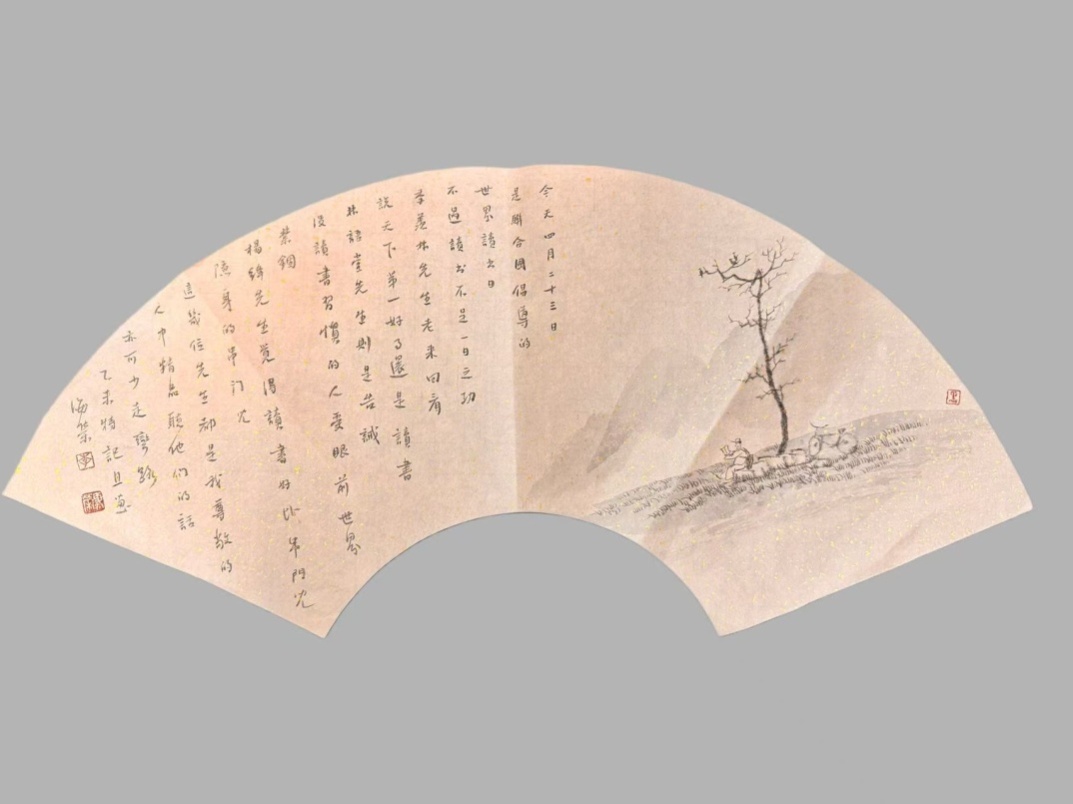 今天四月二十三日
是聯合國倡導的
世界讀书日
不過讀书不是一日之功
季羨林先生老来回看
說天下第一好事還是讀書
林語堂先生則是告誡
沒讀書習慣的人受眼前世界
禁锢
楊絳先生覺得讀書好比串門兒
隱身的串门儿
這幾位先生都是我尊敬的
人中精品聽他们的話
亦可少走彎路
乙未特記且畫
海榮